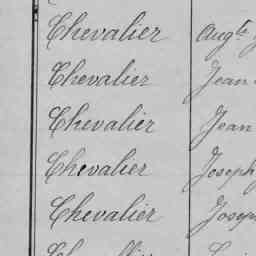 Chevalier Augte
Chevalier Jean
Chevalier Jean
Chevalier Joseph
Chevalier Josep